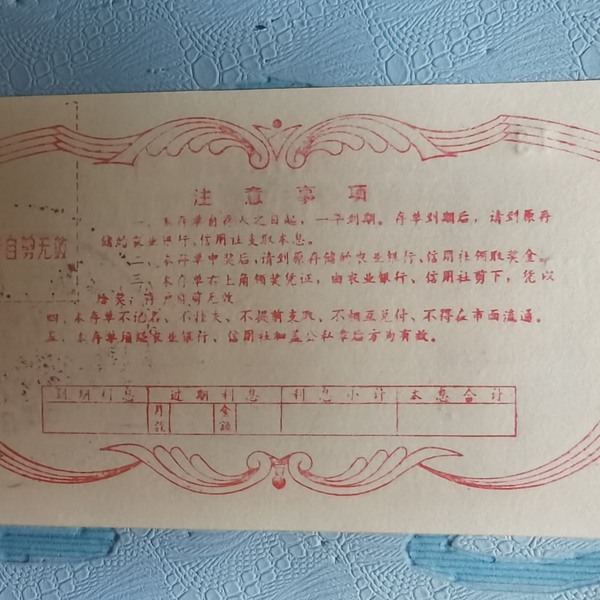 注意事项
一、本存单自存入之日起，一年到期。存单到期后，请到原存
储的农业银行、信用社支取本息。
二、本存单中奖后，请到原存储的农业银行、信用社领取奖金。
三、本存单右上角领奖凭证，由农业银行、信用社剪下，凭以
给奖；存户自剪无效
四、本存单不记名、不挂失、不提前支取、不相互兑付、不得在市面流通。
五、本存单须经农业银行、信用社加盖公私章后方为有效。
自剪无效
到期利息 过期利息 利息小计 本息合计
月数 金额